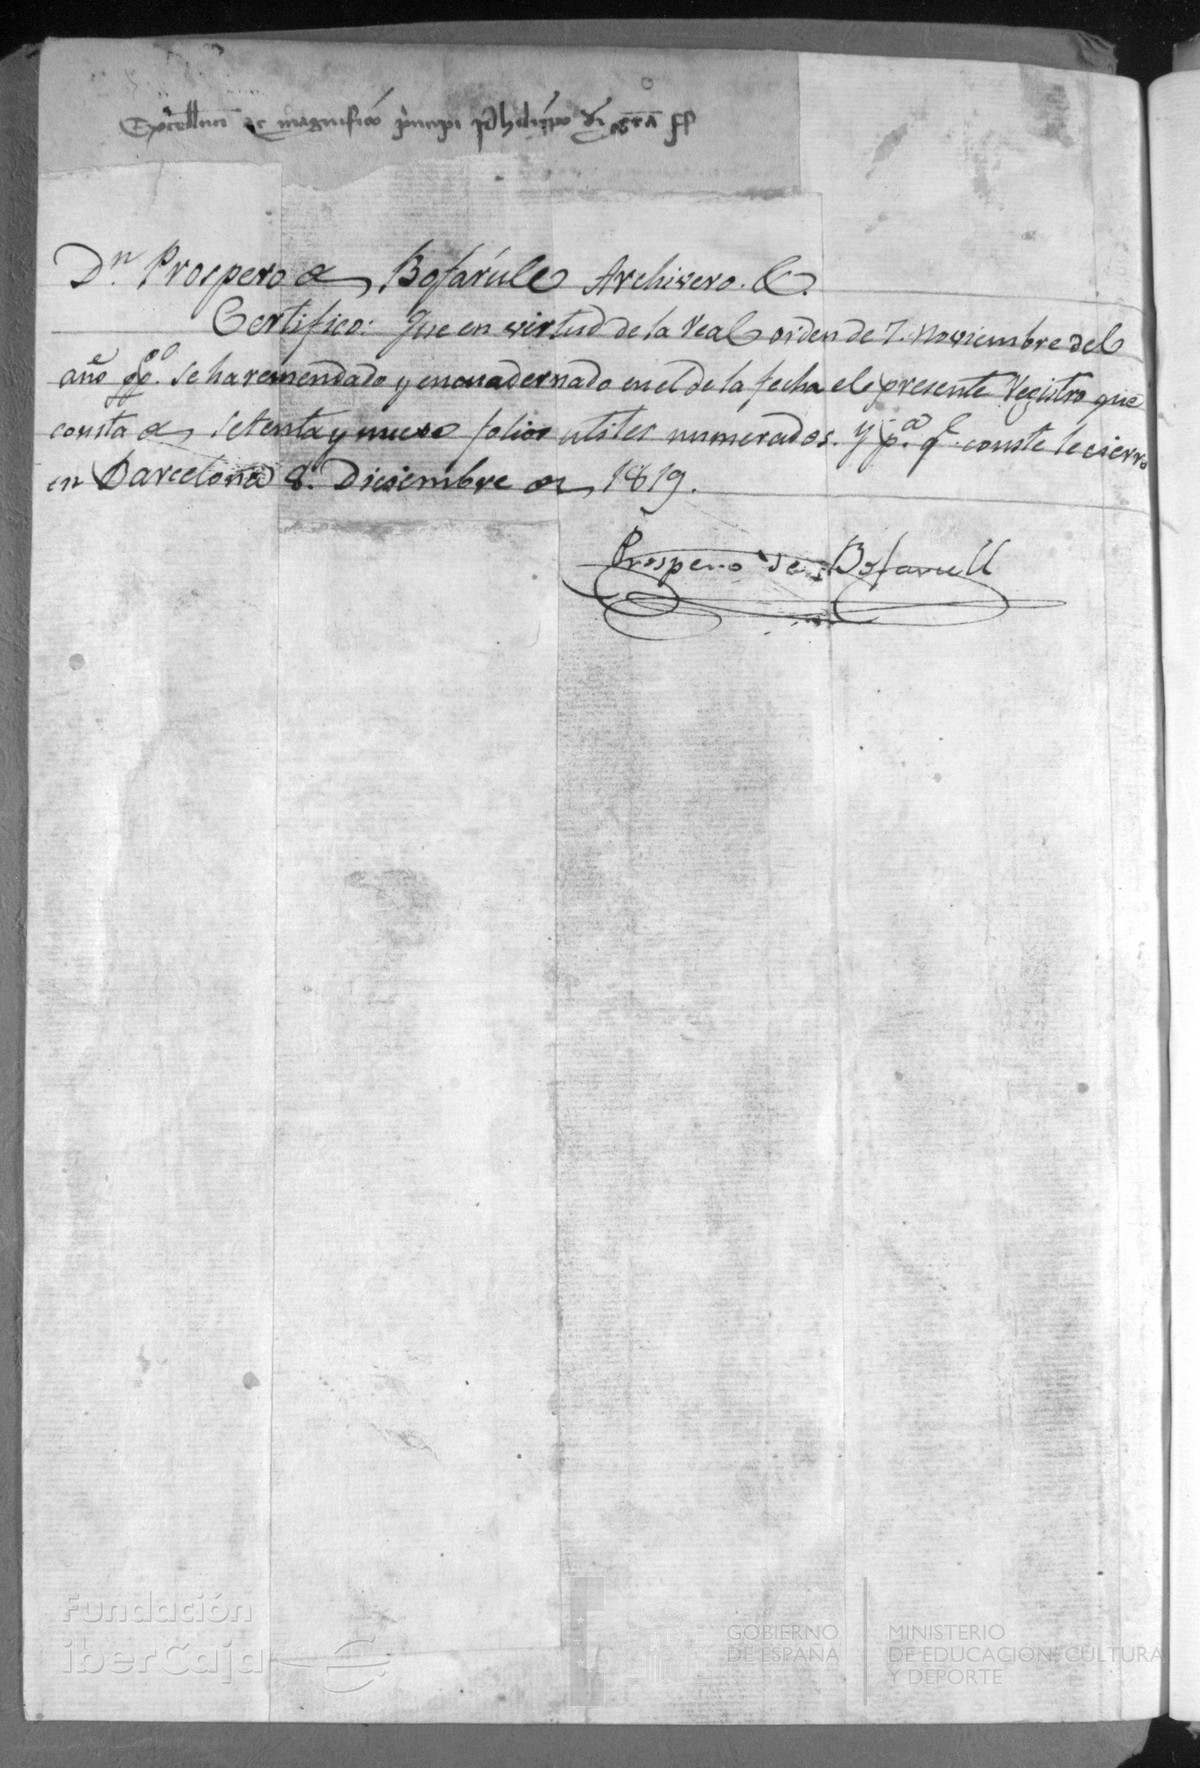 Excellenti ac magnifico principi Philippo dei gra
Dn. Prospero de Bofarúll Archivero. &.
Certifico: Que en virtud de la real orden de 7. Noviembre del
año ppdo. se ha remendado y encuadernado en el de la fecha el presente Registro que
consta de setenta y nueve folios utiles numerados. y pa. qe. conste le cierro
en Barcelona 8. Diciembre de 1819.
Prospero de Bofarull
Fundación
iberCaja
GOBIERNO
DE ESPAÑA
MINISTERIO
DE EDUCACIÓN, CULTURA
Y DEPORTE